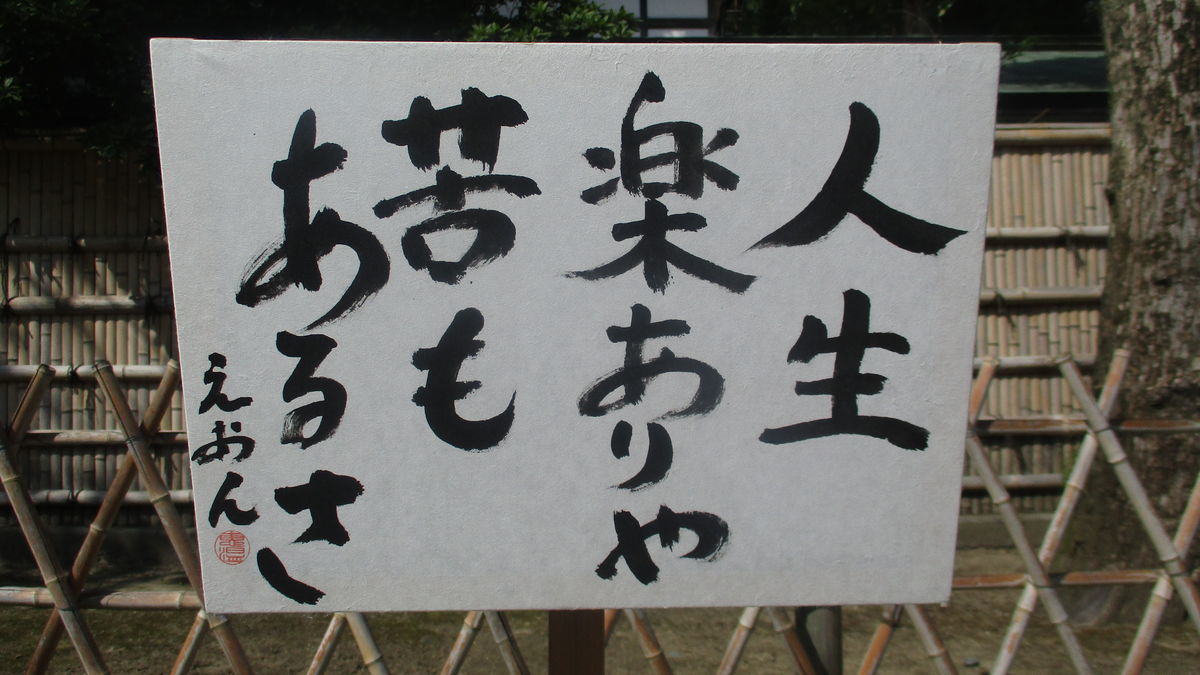 人生
楽ありや
苦も
あるさ
えおん